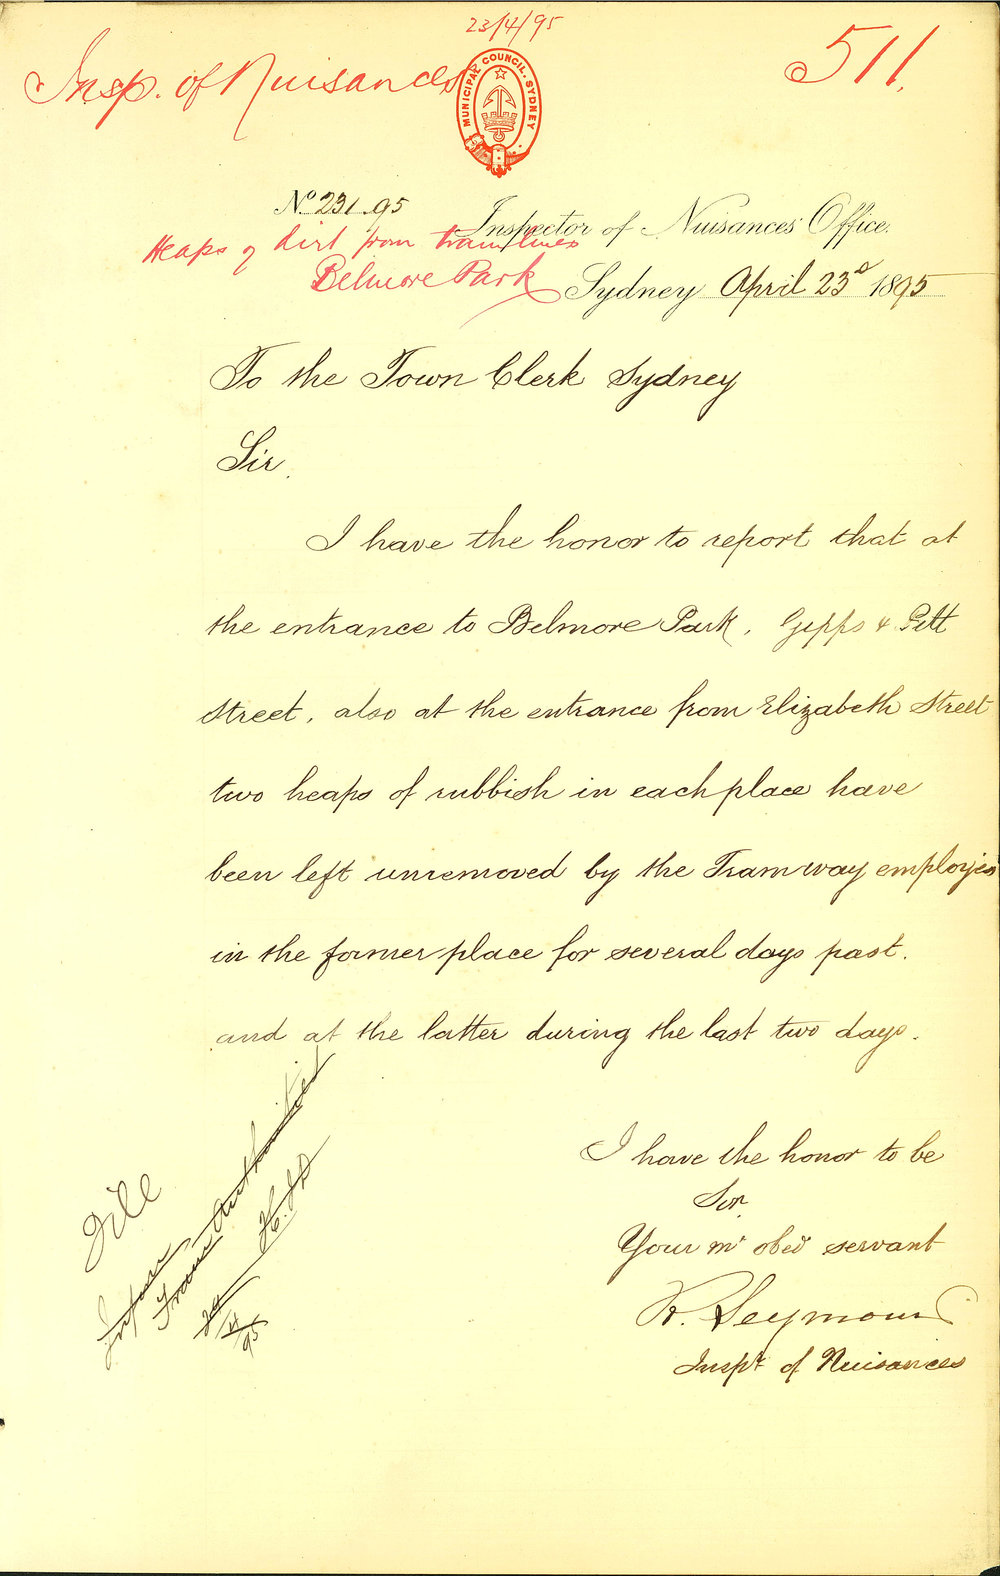 23/4/95
Insp. of Nuisances
511.
MUNICIPAL COUNCIL. SYDNEY
No. 231.95
Inspector of Nuisances Office.
Heaps of dirt from tram lines
Belmore Park
Sydney April 23d 1895
To the Town Clerk Sydney
Sir.
I have the honor to report that at
the entrance to Belmore Park, Gipps & Pitt
Street, also at the entrance from Elizabeth Street
two heaps of rubbish in each place have
been left unremoved by the Tramway employies
in the former place for several days past.
and at the latter during the last two days.
I have the honor to be
Sir,
Your mt obed servant
R. Seymour
Inspr. of Nuisances
File
Inform
Tram Authorities
24/4/95